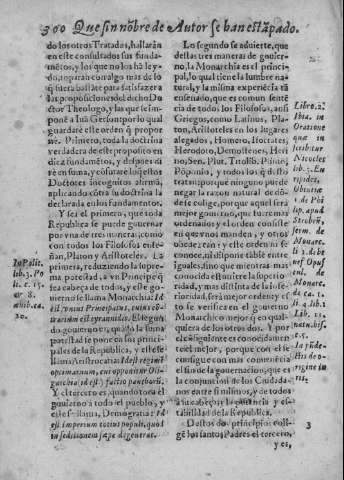 300 Que sin nõbre de Autor se han estãpado.
do los otros Tratados, hallarán
en este consultados sus funda-
mẽtos, y los que no los ha le y-
do, toparán con algo mas de lo
q̃ fuera bastãte para satisfazer a
las proposiciones del dicho Dõ
Theologo, y las que se
pone a Iuã Gerson por lo qual
guardaré este orden q̃ propor
ne. Primero, toda la doctrina
verdadera de este proposito en
diez fundamẽtos, y despues di
ré en suma,
Doctores incognitos afirmã,
aplicando cõtra su doctrina la
declarada en los fundamentos.
Y sea el primero, que toda
Republica se puede gouernar
por vna de tres maneras; como
con todos los Filosofos ense-
ñan, Platon y Aristoteles. La
primera, reduziendo la supre-
ma potestad, a vn Principe q̃
sea cabeça de todos, y este go-
uierno se llama Monarchia: Id
est, vnius Principatus, cui ex cõ-
trarium est tyrannidas. El segun
do gouierno es, quãdo la suma
potestad se pone en los princi-
pales de la Republica, y esse se
llama Aristocratia: Id est regimẽ
optimatum, cui opponitur Oli-
guichia id est, factio paucorũ.
Y el tercero es, quando toca el
gouierno a todo el pueblo, y
este se llama, Democratia: Id
est imperium totius populi, quod
in seditionem sæpe degenerat.
In Polit.
lib. 3. Po
lit. c. 15.
ar 8.
ethic. ca.
10.
Lo segundo se aduierte, que
destas tres maneras de gouier-
no, la Monarchia es el princi-
pal, lo qual tiene la lumbre natu-
ral, y la misma experiẽcia tã
enseñado, que es comun senté-
cia de todos los Filosofos, assi
Griegos, como Latinos, Pla-
ton, Aristoteles en los lugares
alegados, Homero, Isocrates,
Herodoto, Demostenes, Hero
ino, Sen. Plut. Titoliu. Plinio,
Põponio, y todos los q̃ desto
tratan; porque ninguno puede
negar la razon natural de dõ-
de se colige, porque aquel será
mejor gouierno, que fuere mas
ordenado: el orden consiste
en que vnos manden, y otros
obedezcan, y este orden no se co
noce, ni dispone table entre
iguales; sino que mientras mas
conocida estuuiere la superio-
ridad, y mas distinta de la infe-
rioridad, será mejor orden: y es
to se verifica en el gouierno
Monarchico mejor q̃ en qual-
quiera de los otros dos. Y por
el consiguiente es conocidamen
te el mejor, porque con el se
consigue con mas conueniencia
el fin de la gouernacion, que es
la conjuntion de los Ciudada-
nos entre si mismos, y de todos
a su cabeça: y la potencia y es-
tabilidad de la Republica.
Destos dos principios coli-
gẽ los santos Padres el tercero,
y es,
Libro. 2
Ibia. in
Oratione
quæ in
scribitur
Nicocles
lib. 3. Eu
ripides,
nat. his.
8. 5.
origine iu
ris.
3